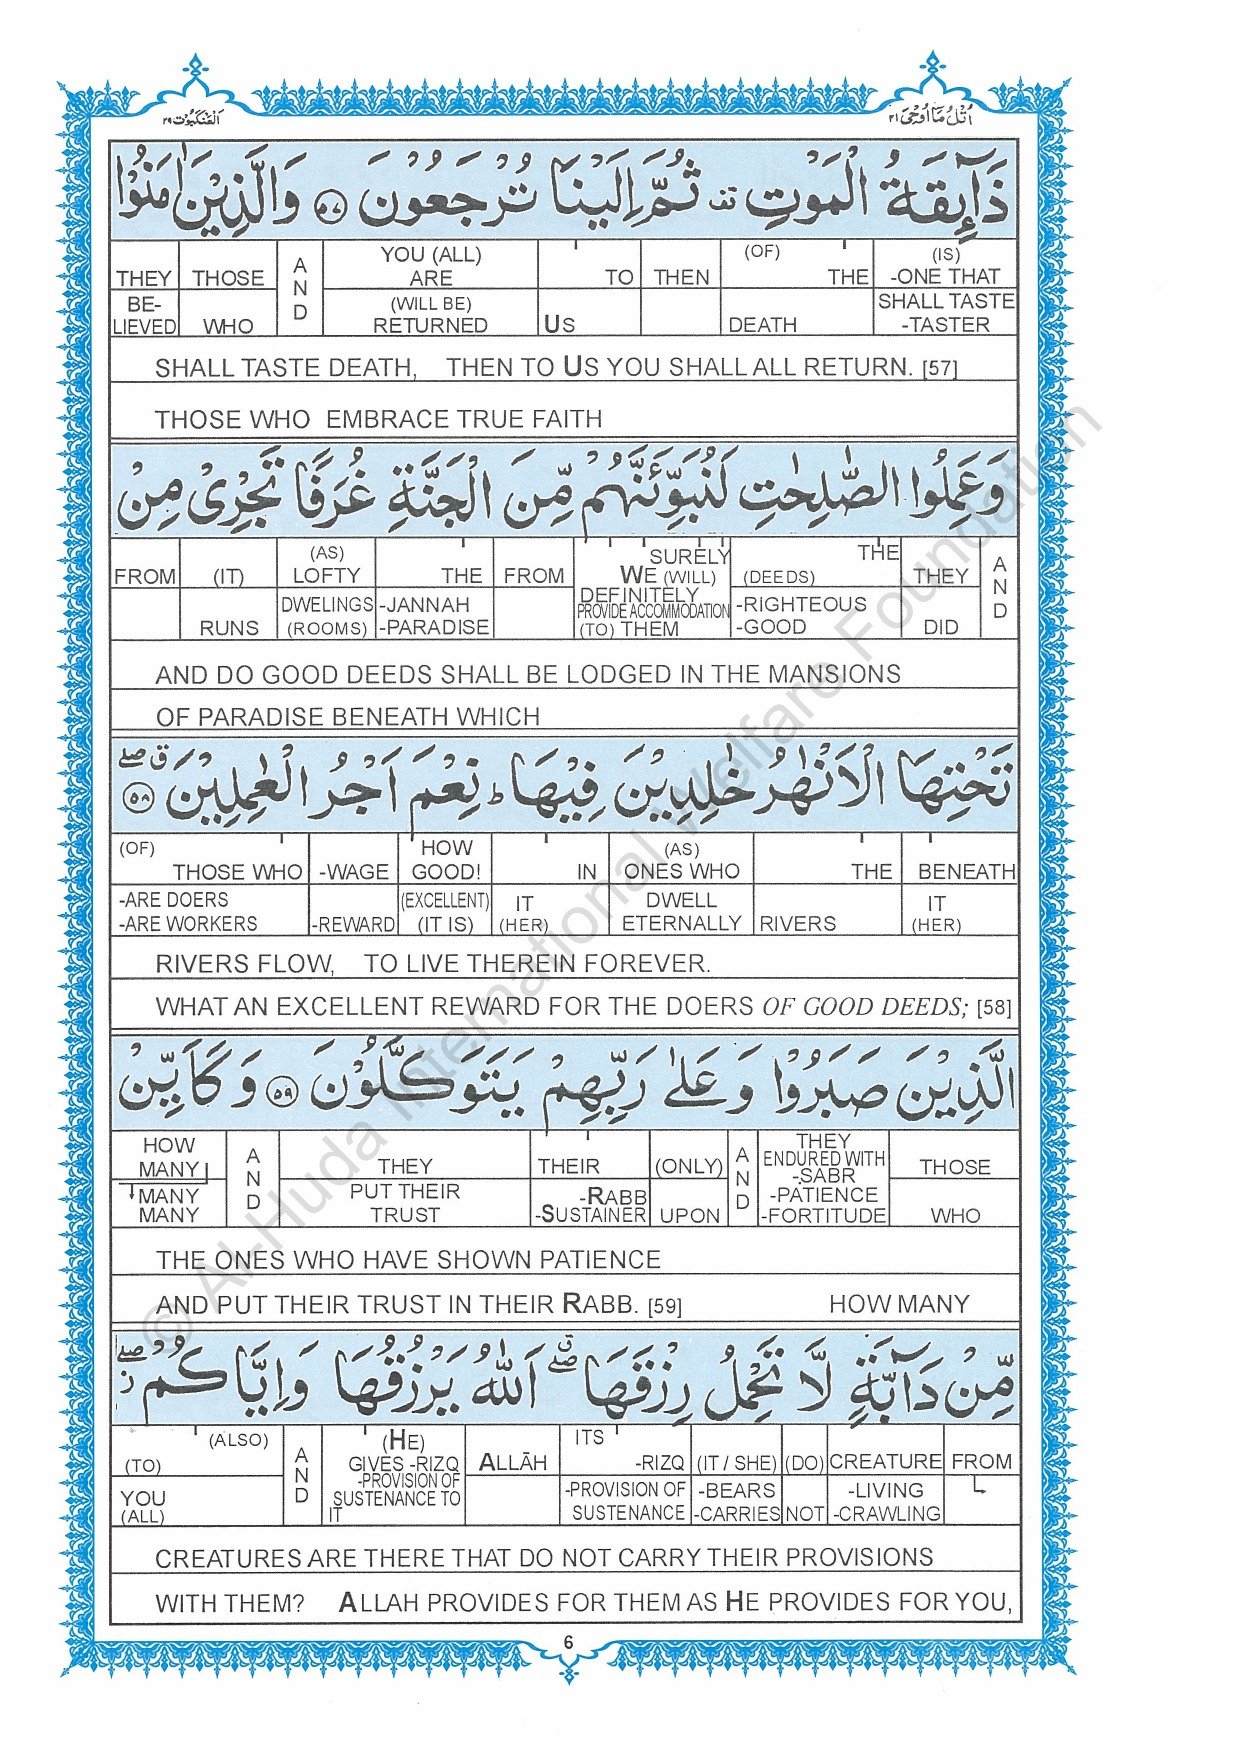 العنكبوت ٢٩
اتل ما اوحى ٢١
ذَآئِقَةُ الْمَوْتِ قف ثُمَّ اِلَيْنَا تُرْجَعُوْنَ ﴿٥٧﴾ وَالَّذِيْنَ اٰمَنُوْا
THEY THOSE AND YOU (ALL) ARE TO THEN (OF) THE (IS) -ONE THAT
BE-LIEVED WHO (WILL BE) RETURNED US DEATH SHALL TASTE -TASTER
SHALL TASTE DEATH, THEN TO US YOU SHALL ALL RETURN. [57]
THOSE WHO EMBRACE TRUE FAITH
وَعَمِلُوا الصّٰلِحٰتِ لَنُبَوِّئَنَّهُمْ مِّنَ الْجَنَّةِ غُرَفًا تَجْرِىْ مِنْ
FROM (IT) (AS) LOFTY THE FROM SURELY WE (WILL) (DEEDS) THE THEY AND
RUNS DWELINGS (ROOMS) -JANNAH -PARADISE DEFINITELY PROVIDE ACCOMMODATION (TO) THEM -RIGHTEOUS -GOOD DID
AND DO GOOD DEEDS SHALL BE LODGED IN THE MANSIONS
OF PARADISE BENEATH WHICH
تَحْتِهَا الْاَنْهٰرُ خٰلِدِيْنَ فِيْهَا ؕ نِعْمَ اَجْرُ الْعٰمِلِيْنَ ﴿٥٨﴾ ق صلے
(OF) THOSE WHO -WAGE HOW GOOD! IN (AS) ONES WHO THE BENEATH
-ARE DOERS -ARE WORKERS -REWARD (EXCELLENT) (IT IS) IT (HER) DWELL ETERNALLY RIVERS IT (HER)
RIVERS FLOW, TO LIVE THEREIN FOREVER.
WHAT AN EXCELLENT REWARD FOR THE DOERS OF GOOD DEEDS; [58]
الَّذِيْنَ صَبَرُوْا وَعَلٰى رَبِّهِمْ يَتَوَكَّلُوْنَ ﴿٥٩﴾ وَكَاَيِّنْ
HOW MANY AND THEY THEIR (ONLY) AND THEY ENDURED WITH -SABR THOSE
MANY MANY PUT THEIR TRUST -RABB -SUSTAINER UPON -PATIENCE -FORTITUDE WHO
THE ONES WHO HAVE SHOWN PATIENCE
AND PUT THEIR TRUST IN THEIR RABB. [59] HOW MANY
مِّنْ دَآبَّةٍ لَّا تَحْمِلُ رِزْقَهَا ق صلے اَللّٰهُ يَرْزُقُهَا وَاِيَّاكُمْ ز صلے
(TO) (ALSO) AND (HE) GIVES -RIZQ ALLĀH ITS -RIZQ (IT / SHE) (DO) CREATURE FROM
YOU (ALL) -PROVISION OF SUSTENANCE TO IT -PROVISION OF SUSTENANCE -BEARS -CARRIES NOT -LIVING -CRAWLING
CREATURES ARE THERE THAT DO NOT CARRY THEIR PROVISIONS
WITH THEM? ALLAH PROVIDES FOR THEM AS HE PROVIDES FOR YOU,
6
© Al-Huda International Welfare Foundation